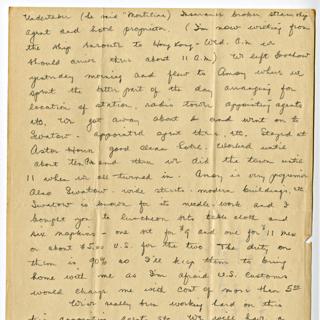 Undertaker (he said "Mortician") Insurance broker steamship
agent and hotel proprietor. (I'm now writing from
the ship enroute to Hong Kong - Wed. A.M. we
should arrive there about 11 A.M.) We left Foochow
yesterday morning and flew to Amoy where we
spent the better part of the day arranging for
location of station, radio tower appointing agents
etc. We got away about 4 and went on to
Swatow - appointed agent there, etc. Stayed at
Astor House good clean hotel. Worked until
about ten PM and then we did the town until
11 when we all turned in. Amoy is very
Also Swatow - wide streets - modern buildings, etc.
Swatow is known for its needle-work and I
bought you to luncheon sets table cloth and
six napkins - one set for $9 and one for $11 mex
or about $5.00 U.S. for the two. The duty on
them is 90% so I'll keep them to bring
home with me as I'm afraid U.S. Customs
would charge me with cost of more than 5.00
We've really been working hard on this
trip appointing agents etc. We will have a